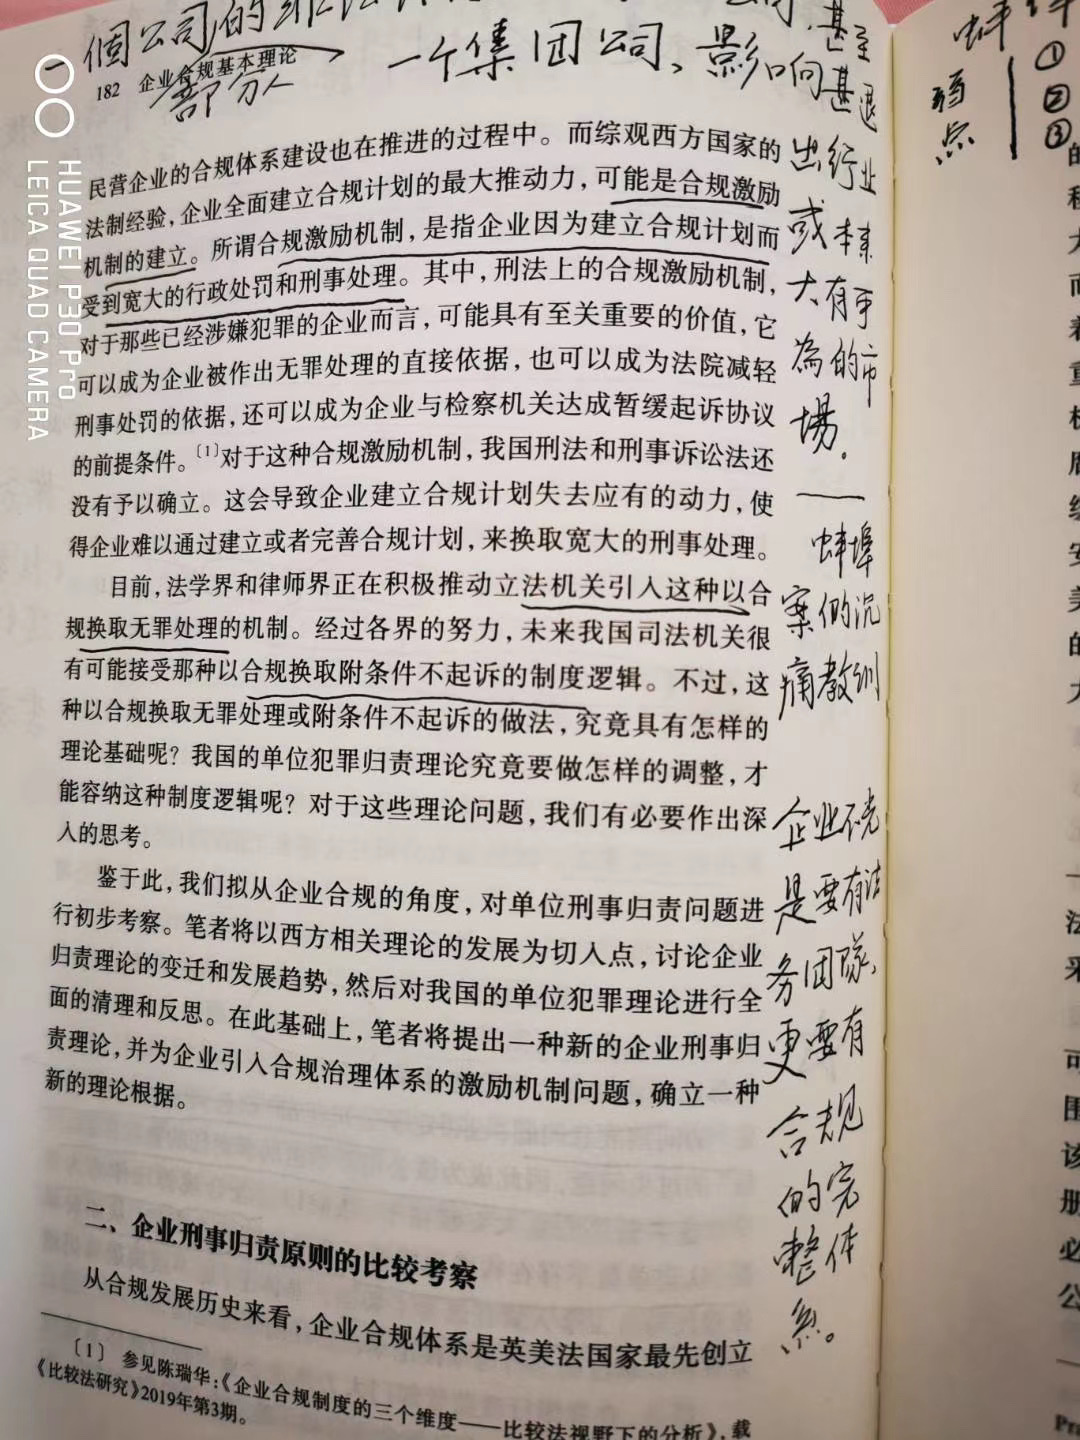 個公司的非法
一个集团公司、影响
甚至
甚退
出行业
或本来
大有可
為的市
場。
蚌埠
案例的沉
痛教训
企业不光
是要有法
务团隊、
更要有
合规
的完
整体
系。
部分人
182 企业合规基本理论
民营企业的合规体系建设也在推进的过程中。而综观西方国家的
法制经验，企业全面建立合规计划的最大推动力，可能是合规激励
机制的建立。所谓合规激励机制，是指企业因为建立合规计划而
受到宽大的行政处罚和刑事处理。其中，刑法上的合规激励机制，
对于那些已经涉嫌犯罪的企业而言，可能具有至关重要的价值，它
可以成为企业被作出无罪处理的直接依据，也可以成为法院减轻
刑事处罚的依据，还可以成为企业与检察机关达成暂缓起诉协议
的前提条件。〔1〕对于这种合规激励机制，我国刑法和刑事诉讼法还
没有予以确立。这会导致企业建立合规计划失去应有的动力，使
得企业难以通过建立或者完善合规计划，来换取宽大的刑事处理。
目前，法学界和律师界正在积极推动立法机关引入这种以合
规换取无罪处理的机制。经过各界的努力，未来我国司法机关很
有可能接受那种以合规换取附条件不起诉的制度逻辑。不过，这
种以合规换取无罪处理或附条件不起诉的做法，究竟具有怎样的
理论基础呢？我国的单位犯罪归责理论究竟要做怎样的调整，才
能容纳这种制度逻辑呢？对于这些理论问题，我们有必要作出深
入的思考。
鉴于此，我们拟从企业合规的角度，对单位刑事归责问题进
行初步考察。笔者将以西方相关理论的发展为切入点，讨论企业
归责理论的变迁和发展趋势，然后对我国的单位犯罪理论进行全
面的清理和反思。在此基础上，笔者将提出一种新的企业刑事归
责理论，并为企业引入合规治理体系的激励机制问题，确立一种
新的理论根据。
二、企业刑事归责原则的比较考察
从合规发展历史来看，企业合规体系是英美法国家最先创立
〔1〕 参见陈瑞华：《企业合规制度的三个维度——比较法视野下的分析》，载
《比较法研究》2019年第3期。
弱点
①
②
③
HUAWEI P30 Pro
LEICA QUAD CAMERA